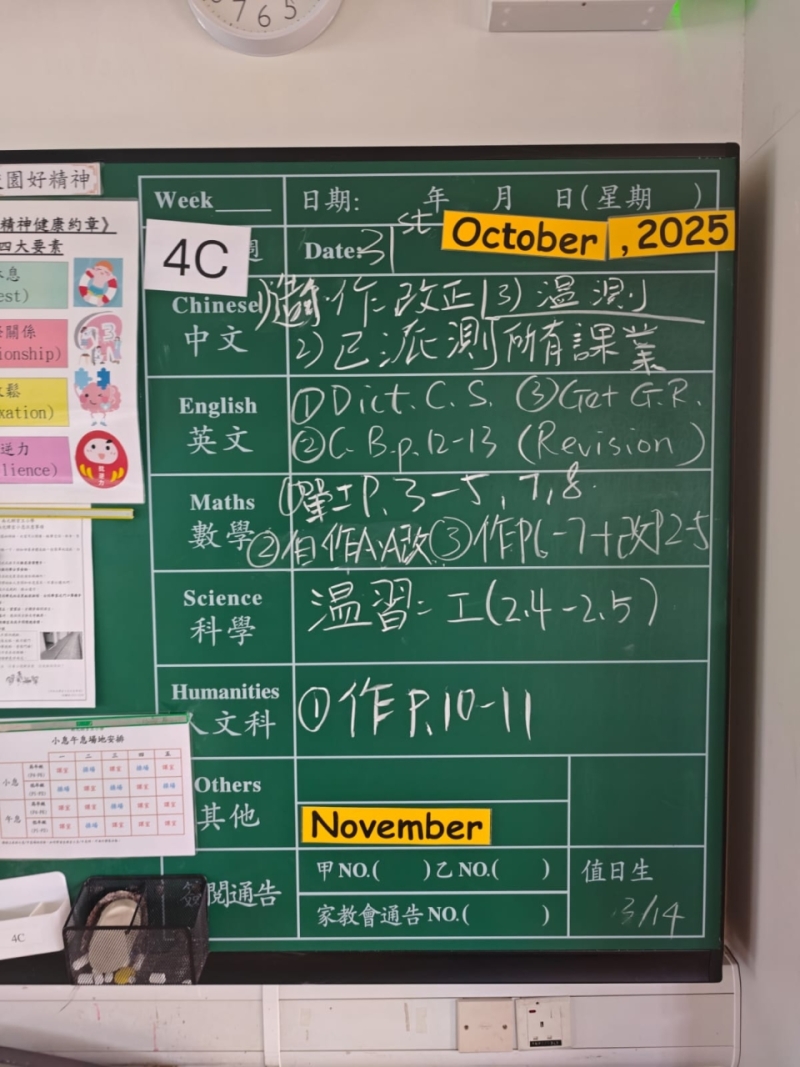 7 6 5
園好精神
精神健康約章》
四大要素
息
est)
關係
ionship)
鬆
xation)
逆力
lience)
Week____ 日期: 年 月 日(星期 )
4C Date: 31st October , 2025
Chinese 中文
作 改正 3) 溫測
2) 已派測所有課業
English 英文
① Dict. C. S. ③ Get G.R.
② C. B. p. 12-13 (Revision)
Maths 數學
① 工P. 3-5, 7, 8.
② 自作A、A改 ③ 作P6-7+改P2-5
Science 科學
溫習: 工(2.4-2.5)
Humanities 人文科
① 作 P.10-11
Others 其他
November
簽閱通告
甲NO.( )乙NO.( )
家教會通告NO.( )
值日生
3/14
小息午息場地安排
一 二 三 四 五
小息
午息
4C